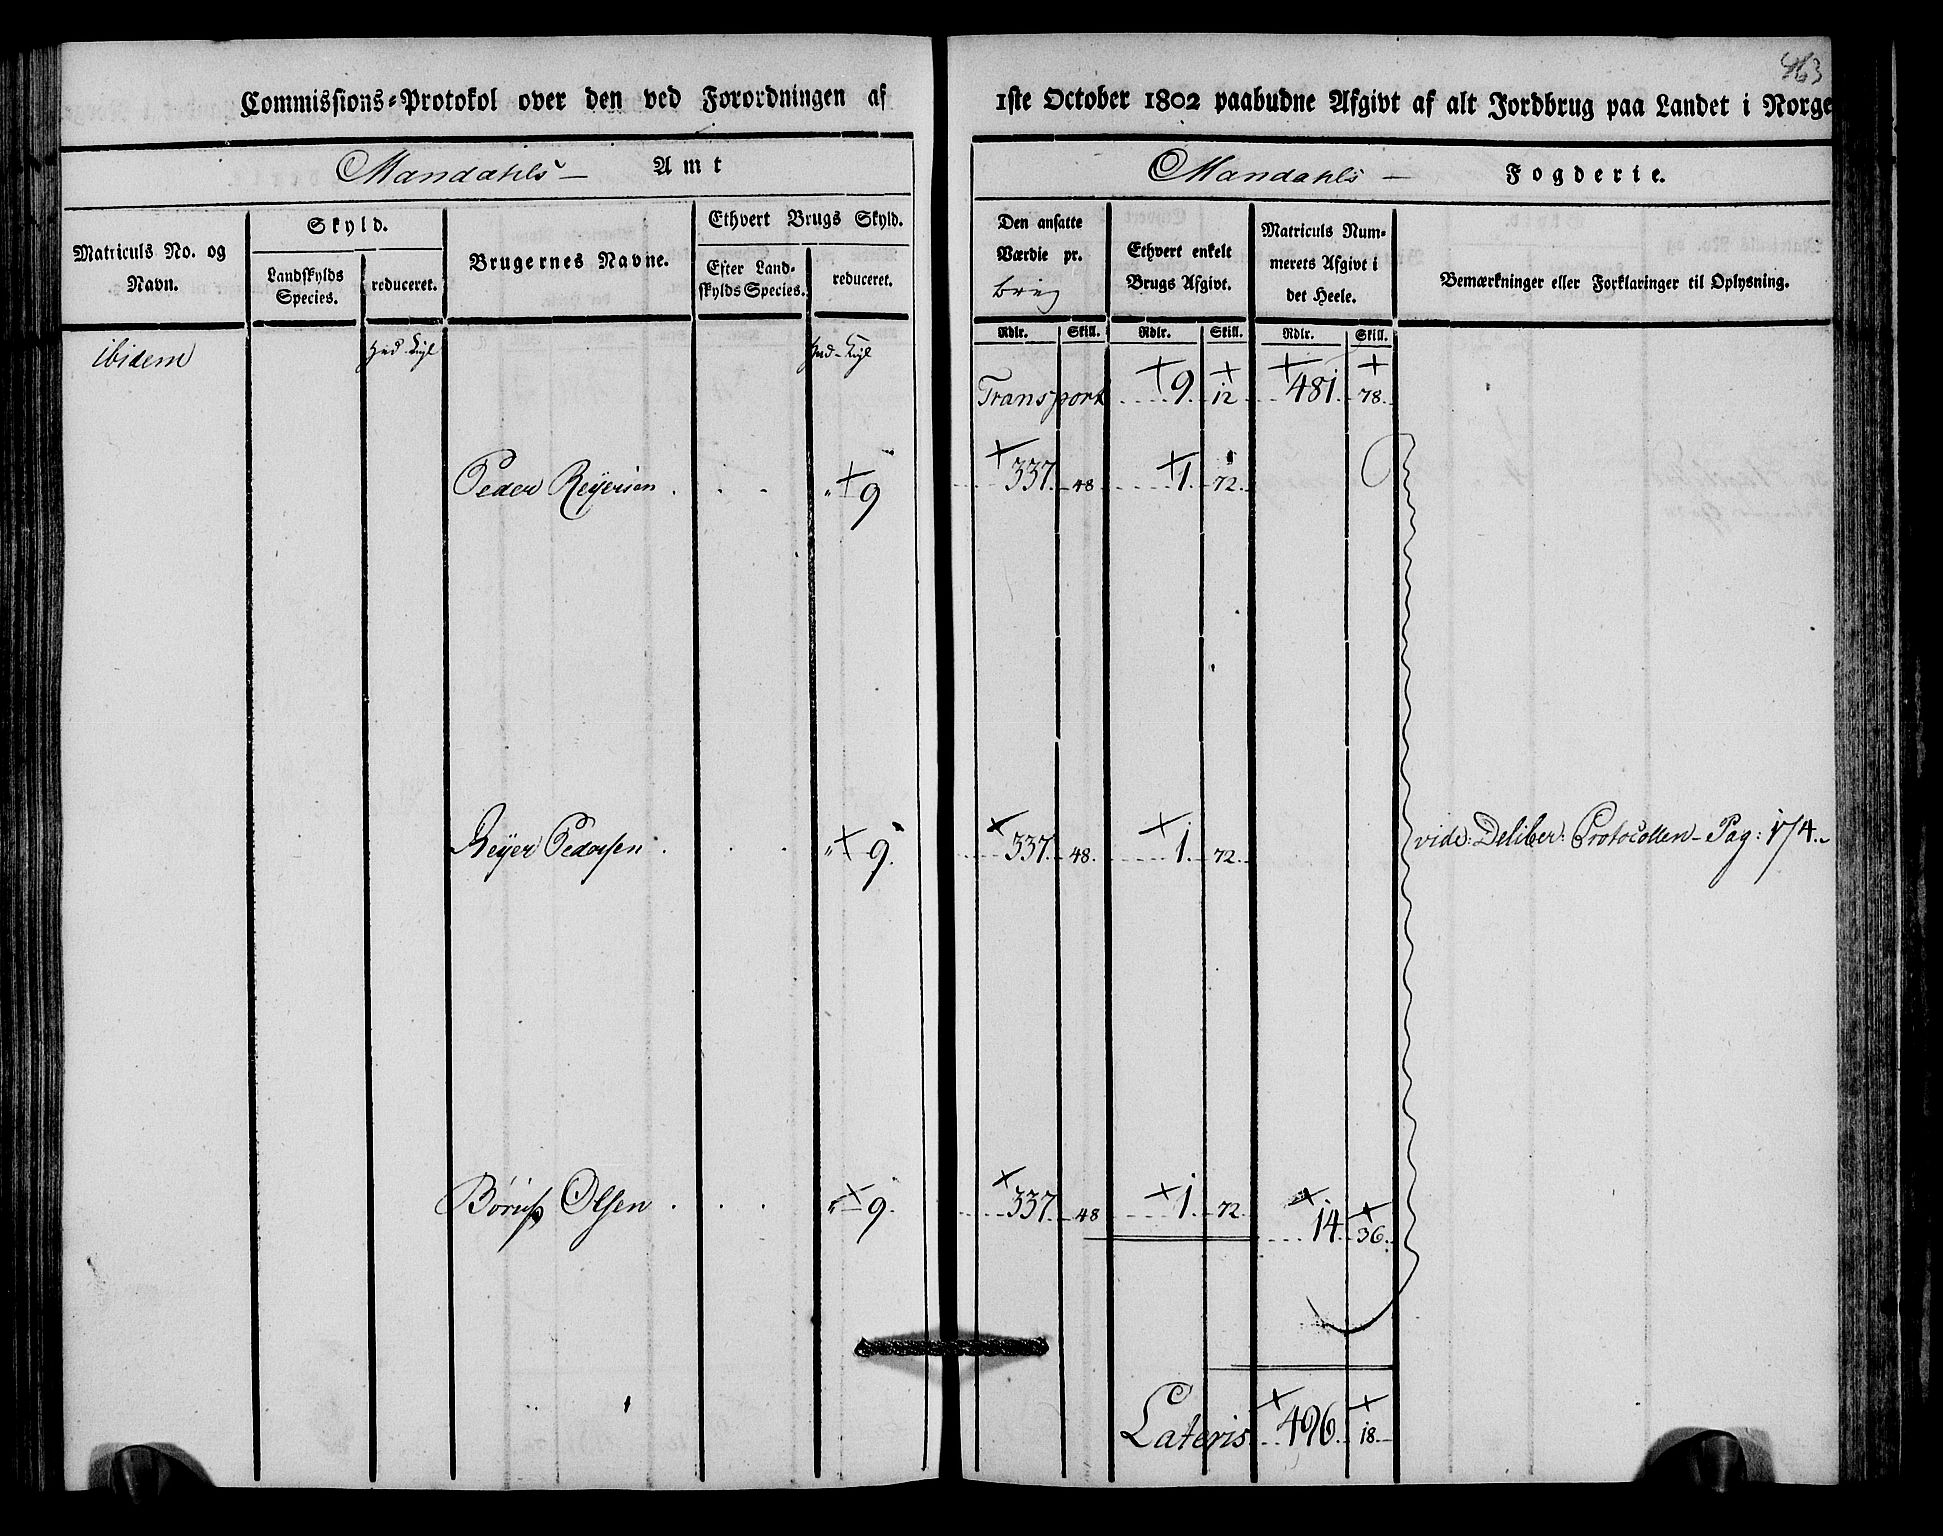 463
Commissions=Protokol over den ved Forordningen af 1ste October 1802 paabudne Afgivt af alt Jordbrug paa Landet i Norge
Mandahls — Amt
Mandahls — Fogderie.
Matriculs No. og Navn.
Skyld.
Landskylds Species.
reduceret.
Brugernes Navne.
Ethvert Brugs Skyld.
Efter Landskylds Species.
reduceret.
Den ansatte Værdie pr.
Ethvert enkelt Brugs Afgivt.
Matriculs Nummerets Afgivt i det Heele.
Bemærkninger eller Forklaringer til Oplysning.
Rdlr. Skill. Rdlr. Skill. Rdlr. Skill.
ibidem
Transport 9 12 481 78
Peder Reyersen . . . " 9 337 48 1 72
Reyer Pedersen . . . " 9 337 48 1 72 vide: Deliber: Protocollen - Pag: 174.
Olsen . . . " 9 337 48 1 72 14 36
Lateris 496 18